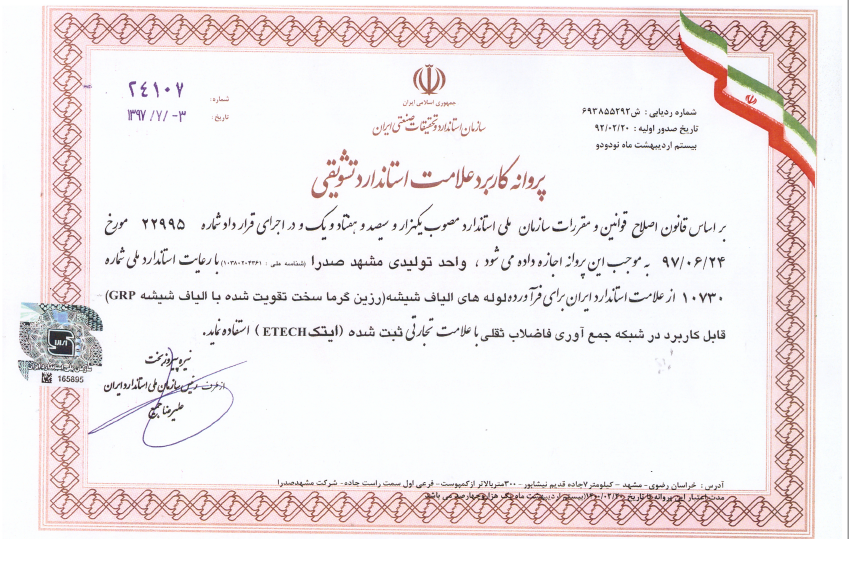 جمهوری اسلامی ایران
سازمان استاندارد و تحقیقات صنعتی ایران
شماره: ۲۴۱۰۷
تاریخ: ۱۳۹۷/۷/-۳
شماره ردیابی : ش۶۹۳۸۵۵۲۹۲
تاریخ صدور اولیه : ۹۲/۰۲/۲۰
بیستم اردیبهشت ماه نودودو
پروانه کاربرد علامت استاندارد تشویقی
بر اساس قانون اصلاح قوانین و مقررات سازمان ملی استاندارد مصوب یکهزار و سیصد و هفتاد و یک و در اجرای قرار داد شماره ۲۲۹۹۵ مورخ
۹۷/۰۶/۲۴ به موجب این پروانه اجازه داده می شود ، واحد تولیدی مشهد صدرا (شناسه ملی : ۱۰۳۸۰۲۰۴۳۶۱) با رعایت استاندارد ملی شماره
۱۰۷۳۰ از علامت استاندارد ایران برای فرآورده لوله های الیاف شیشه(رزین گرما سخت تقویت شده با الیاف شیشه GRP)
قابل کاربرد در شبکه جمع آوری فاضلاب ثقلی با علامت تجارتی ثبت شده (ایتک ETECH) استفاده نماید.
نیره پیروزبخت
از طرف رئیس سازمان ملی استاندارد ایران
علیرضا
165895
آدرس : خراسان رضوی - مشهد - کیلومتر ۷جاده قدیم نیشابور - ۳۰۰متربالاتر ازکمپوست - فرعی اول سمت راست جاده- شرکت مشهدصدرا
مدت اعتبار این پروانه تا تاریخ ۱۴۰۰/۰۲/۲۰(بیستم اردیبهشت ماه یک هزاروچهارصد می باشد.